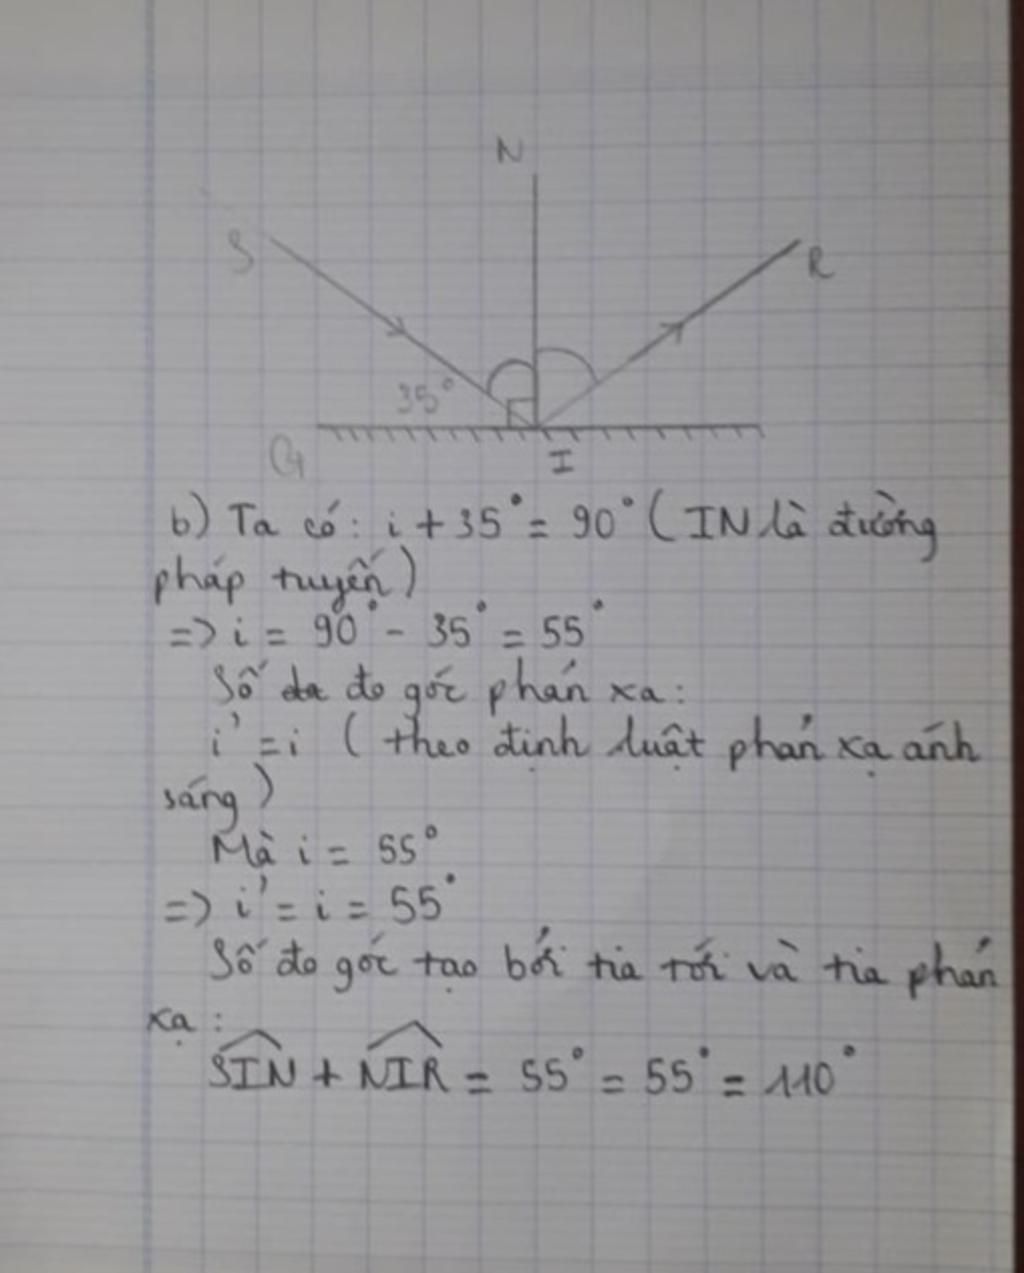 N
S
R
35°
G
I
b) Ta có: i + 35° = 90° ( IN là đường
pháp tuyến )
=> i = 90° - 35° = 55°
Số đo góc phản xạ:
i' = i ( theo định luật phản xạ ánh
sáng )
Mà i = 55°
=> i' = i = 55°
Số đo góc tạo bởi tia tới và tia phản
xạ :
SIN + NIR = 55° = 55° = 110°